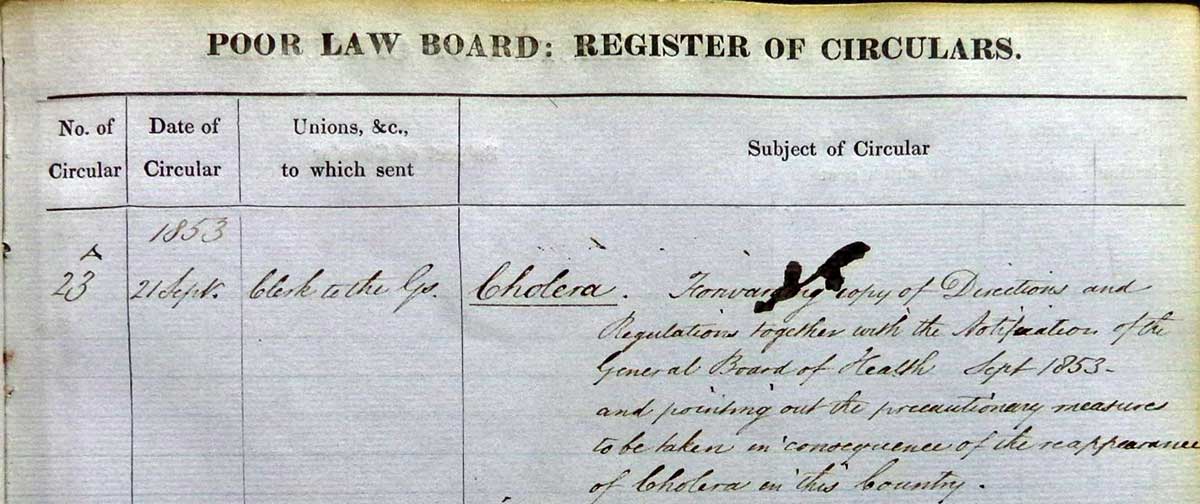 POOR LAW BOARD: REGISTER OF CIRCULARS.
No. of Circular
Date of Circular
Unions, &c., to which sent
Subject of Circular
1853
A
23 21 Sept. Clerk to the Gs. Cholera. Forwarding copy of Directions and
Regulations together with the Notification of the
General Board of Health Sept 1853-
and pointing out the precautionary measures
to be taken in consequence of the reappearance
of Cholera in this Country.